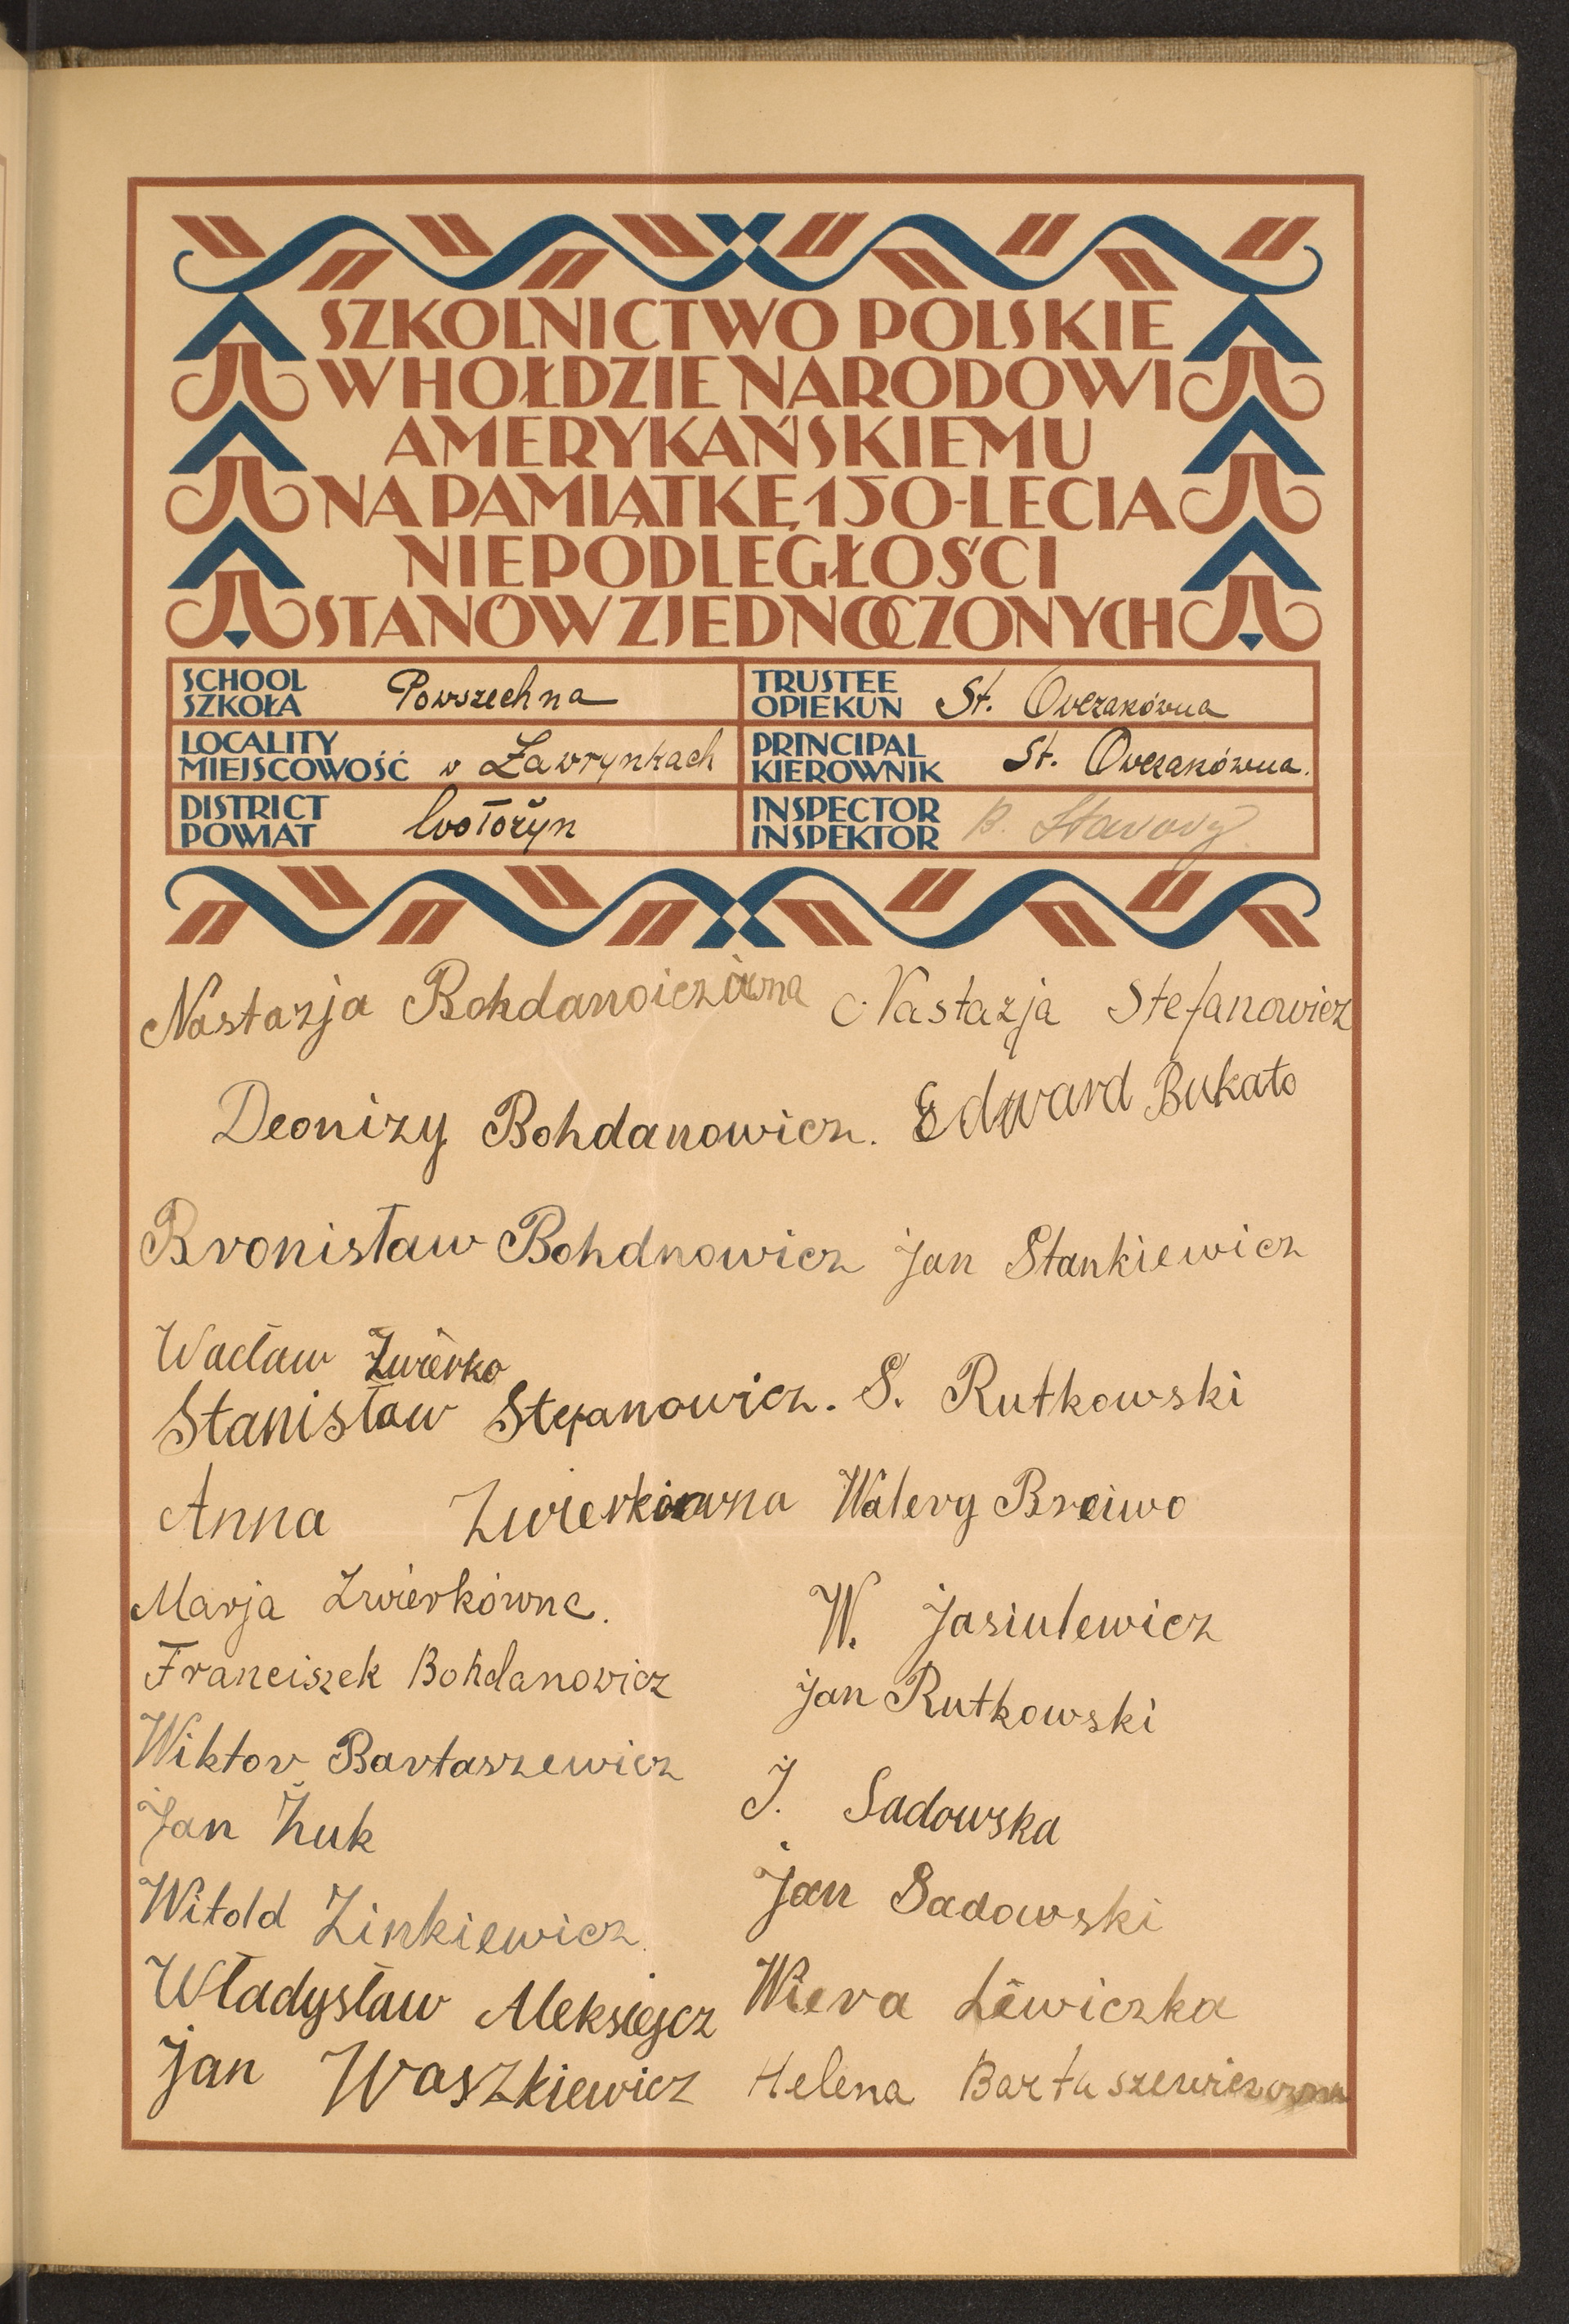 SZKOLNICTWO POLSKIE
W HOŁDZIE NARODOWI
AMERYKAŃSKIEMU
NA PAMIĄTKĘ 150-LECIA
NIEPODLEGŁOŚCI
STANÓW ZJEDNOCZONYCH
SCHOOL
SZKOŁA Powszechna
TRUSTEE
OPIEKUN St. Owczakówna
LOCALITY
MIEJSCOWOŚĆ w Zawrynkach
PRINCIPAL
KIEROWNIK St. Owczakówna.
DISTRICT
POWIAT Wołożyn
INSPECTOR
INSPEKTOR B.
Nastazja Bohdanoiczówna Nastazja Stefanowicz
Deonizy Bohdanowicz. Edward Bukato
Bronisław Bohdnowicz Jan Stankiewicz
Wacław Zwierko
Stanisław Stefanowicz. S. Rutkowski
Anna Zwierkówna Walery Breiwo
Marja Zwierkówna.
W. Jasiulewicz
Franciszek Bohdanowicz
Jan Rutkowski
Wiktor Bartaszewicz
J. Sadowska
Jan Żuk
Jan Sadowski
Witold Zinkiewicz.
Władysław Aleksiejcz Wiera Lewiczka
Jan Waszkiewicz Helena Bartuszewiczowna